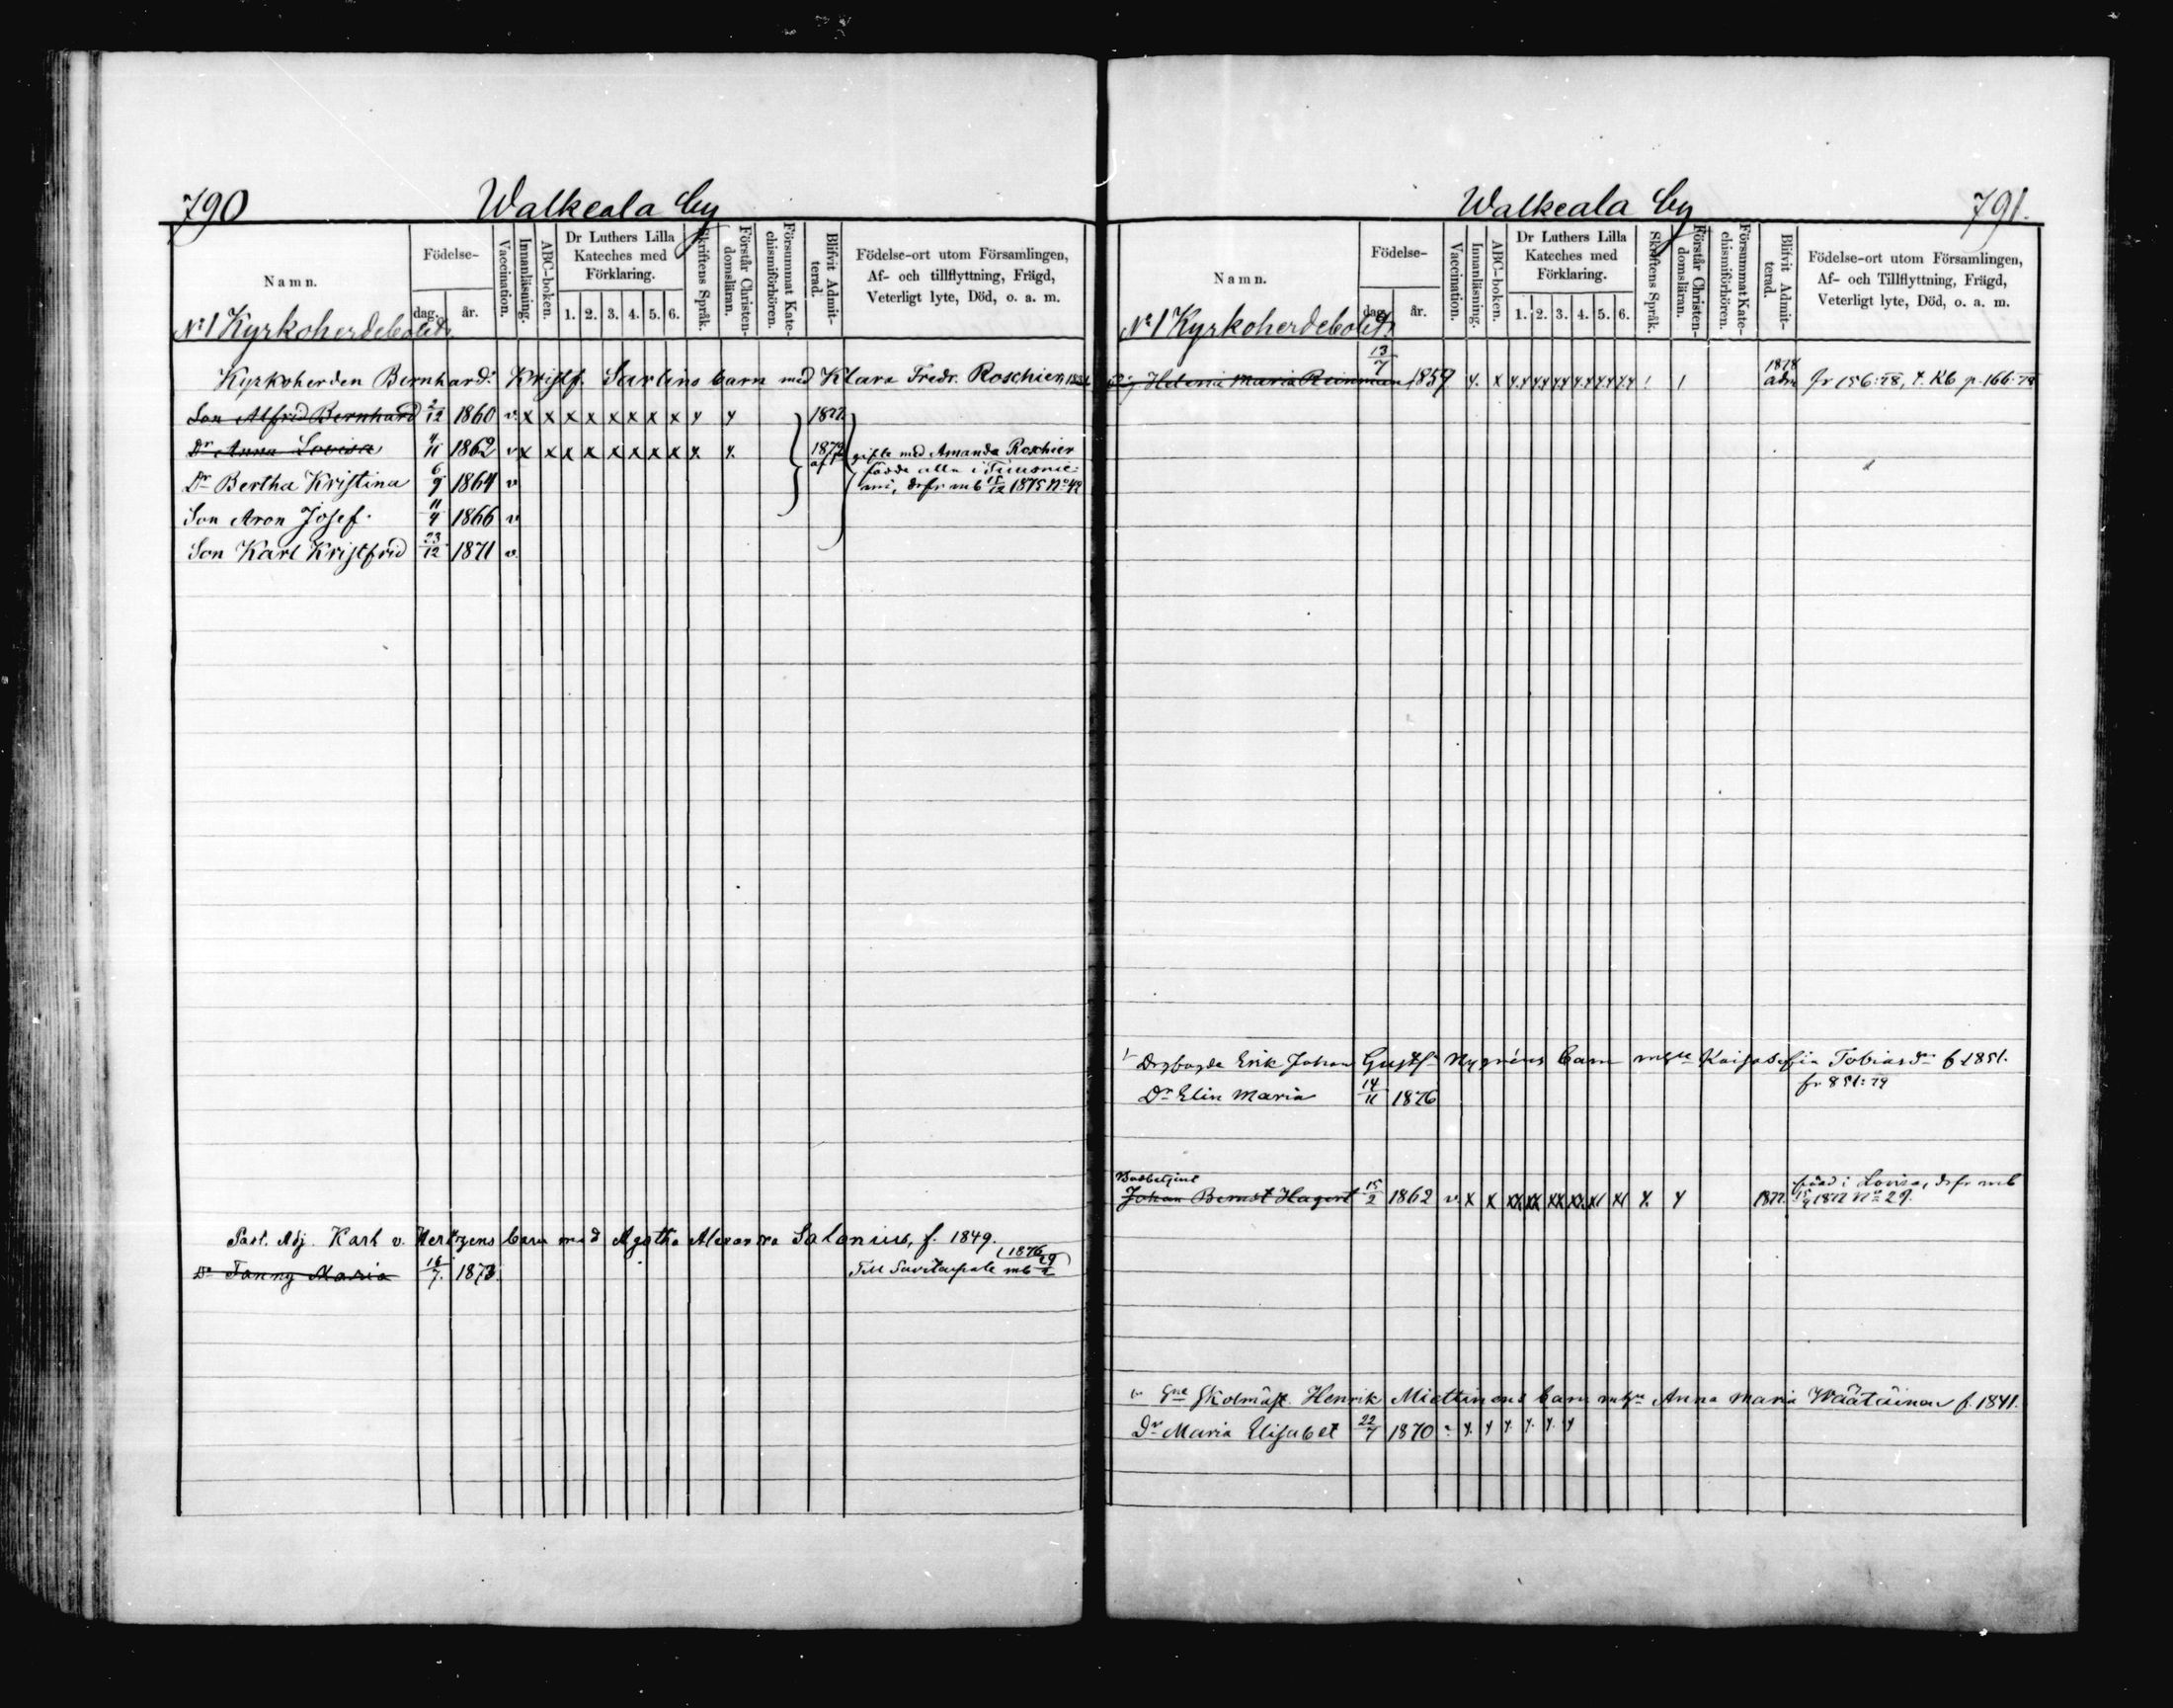 790
Walkeala by
Namn.
Födelse-
dag. år.
Vaccination.
Innanläsning.
ABC-boken.
Dr Luthers Lilla Kateches med Förklaring.
1. 2. 3. 4. 5. 6.
Skriftens Språk.
Förstår Christendomsläran.
Försummat Katechismiförhören.
Blifvit Admitterad.
Födelse-ort utom Församlingen,
Af- och tillflyttning, Frägd,
Veterligt lyte, Död, o. a. m.
No 1 Kyrkoherdebolet
Kyrkoherden Bernhard Kristf. Sarlins barn med Klara Fredr. Roschier
Son Alfrid Bernhard 2/12 1860 v x x x x x x x x x x 1877.
Dr Anna Lovisa 4/11 1862 v x x x x x x x x x x 1879 gifte med Amanda Roschier
födde alla i
Dr Bertha Kristina 6/9 1864 v 15/12 1875 No 42
Son Aron Josef. 11/4 1866 v
Son Karl Kristfrid 23/12 1871 v.
Past. Adj. Karl v. Hertzens barn med Agatha Alexandra Salonius, f. 1849.
Dr Fanny Maria 16/7. 1873 Till Savitaipale mb 29/2 1876
Walkeala by
791.
Namn.
Födelse-
dag. år.
Vaccination.
Innanläsning.
ABC-boken.
Dr Luthers Lilla Kateches med Förklaring.
1. 2. 3. 4. 5. 6.
Skriftens Språk.
Förstår Christendomsläran.
Försummat Katechismiförhören.
Blifvit Admitterad.
Födelse-ort utom Församlingen,
Af- och Tillflyttning, Frägd,
Veterligt lyte, Död, o. a. m.
No 1 Kyrkoherdebolet
Helena Maria Reinman 13/7 1859 1878 adm fr 156:78, t. Kb p. 166:78
Erik Johan Gustfs Nygréns barn Kaisa Sofia Tobiasdr f. 1851.
fr 851:79
Dr Elin Maria 14/11 1876
Johan Bernst Hagert 15/2 1862 v. x x xx xx xx xx x x x x 1877. född i Lovisa, drfr mb
1877 No 29.
Skolmäst. Henrik Miettinens barn Anna Maria Wäätäinen f. 1841.
Dr Maria Elisabet 22/7 1870